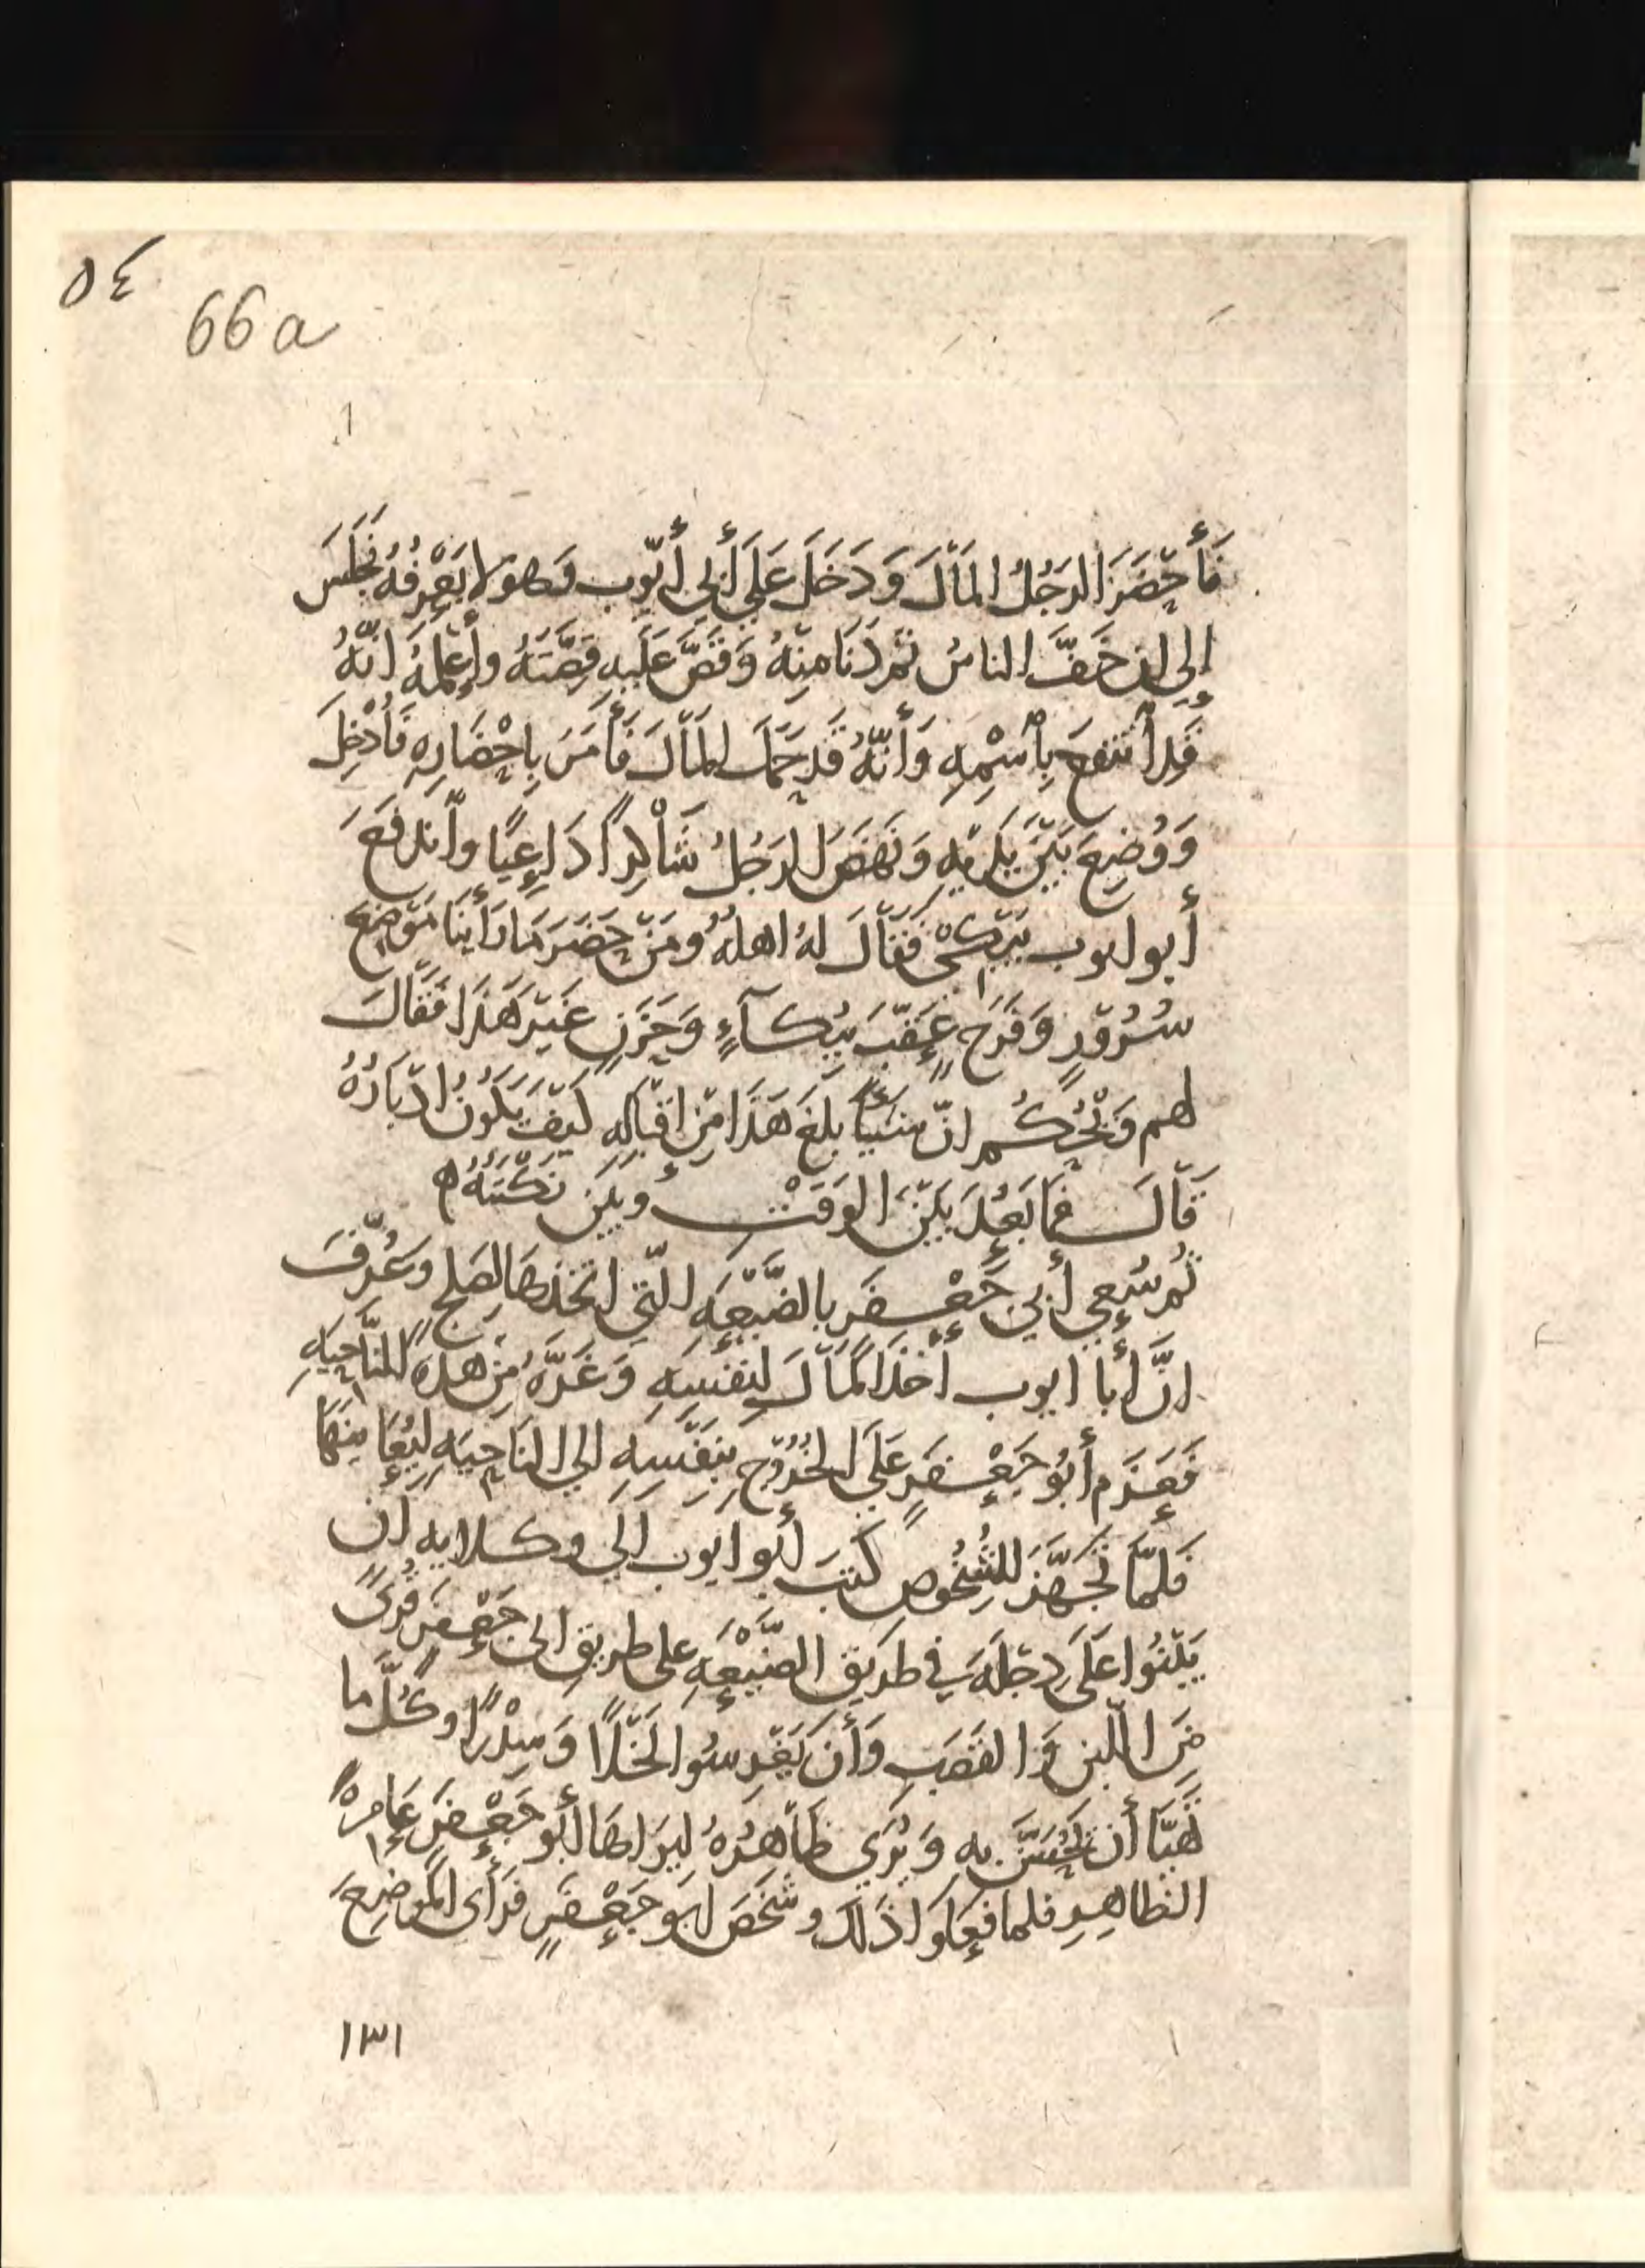 ٥٤
66a
فَأَحْضَرَ الرَجُلُ المَالَ وَدَخَلَ عَلَى أَبِي أَيّوب وَهولا يَعْرِفُهُ فجَلَسَ
إلى ان خَفَّ الناسُ ثم دَنَا مِنهُ وَقَصَّ عَلَيهِ قِصَّتَهُ وأَعلمَهُ انّهُ
قَد اُنتفع بِاُسْمِهِ وَأَنّهُ قَد حَمَل المَالَ فَأَمَرَ بِاحْضَارِهِ فَأُدْخِلَ
وَوُضِعَ بَيْنَ يَدَيهِ وَنَهَضَ الرَجُلُ شَاكِراً دَاعِيًا واندَفَعَ
أبو ايوب يَبكي فَقَالَ لهُ اهلهُ ومَن حَضَرَ مَا رَأينَا مَوضِعَ
سُرُورٍ وَفَرَحٍ عُقّبَ بِبُكآءٍ وَحَزَنٍ غَيرَ هَذَا فَقَالَ
لهم وَيْحَكُم انّ شيئًا بلَغَ هَذَا مِن اقبَالِهِ كَيفَ يَكونُ ادبَارُهُ
قَالَ فمَا بَعُدَ بَيْنَ الوَقتِ وبَيْنَ نَكْبَتهُ ه
ثُم سُعِي أبي جَعْفَر بالضَّيْعَهِ الّتي اتخذهَا لِصَلحٍ وعُرّفَ
انَّ أبا ايوب أخَذَ المَالَ لنفسِهِ وَغَرَّهُ مِن هذه النَاحيَهِ
فَعَزَم أَبُو جَعْفَرٍ عَلَى الخُرُوجِ بِنَفسِهِ الي النَاحِيَهِ ليُعَاينَهَا
فَلمّا تَجهَّزَ للشُخُوصِ كَتبَ أَبو ايوب الَى وكلايه ان
يَبْنُوا عَلَى دِجلَهَ في طَريقِ الضَّيْعَهِ على طريقِ ابى جَعْفَرٍ قُرىً
مِنَ اللّبن وَالقَصَبِ وَأن يَغرِسُوا نَخْلًا وَسِدْرًا وكُلَّ ما
تَهيّا أن يُحَسَّن به وَيُرَي ظَاهِرُهُ ليَراهَا أَبو جَعْفَرٍ عَامِرةً
الظاهِرِ فلما فَعَلوا ذَلك وشَخَصَ ابو جَعْفَرٍ فَرَأى المَوضِعَ
١٣١